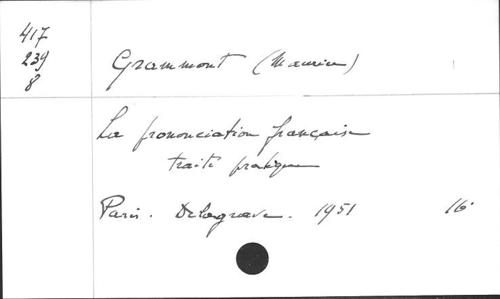 417
239
8
Grammont (Maurice)
La prononciation française
traité pratique
Paris. Delagrave. 1951 16°